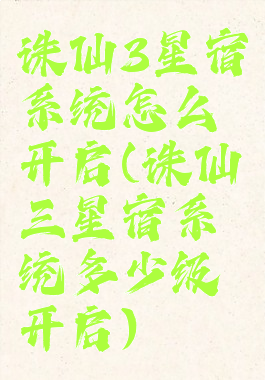 诛仙3星宿
系统怎么
开启(诛仙
三星宿系
统多少级
开启)